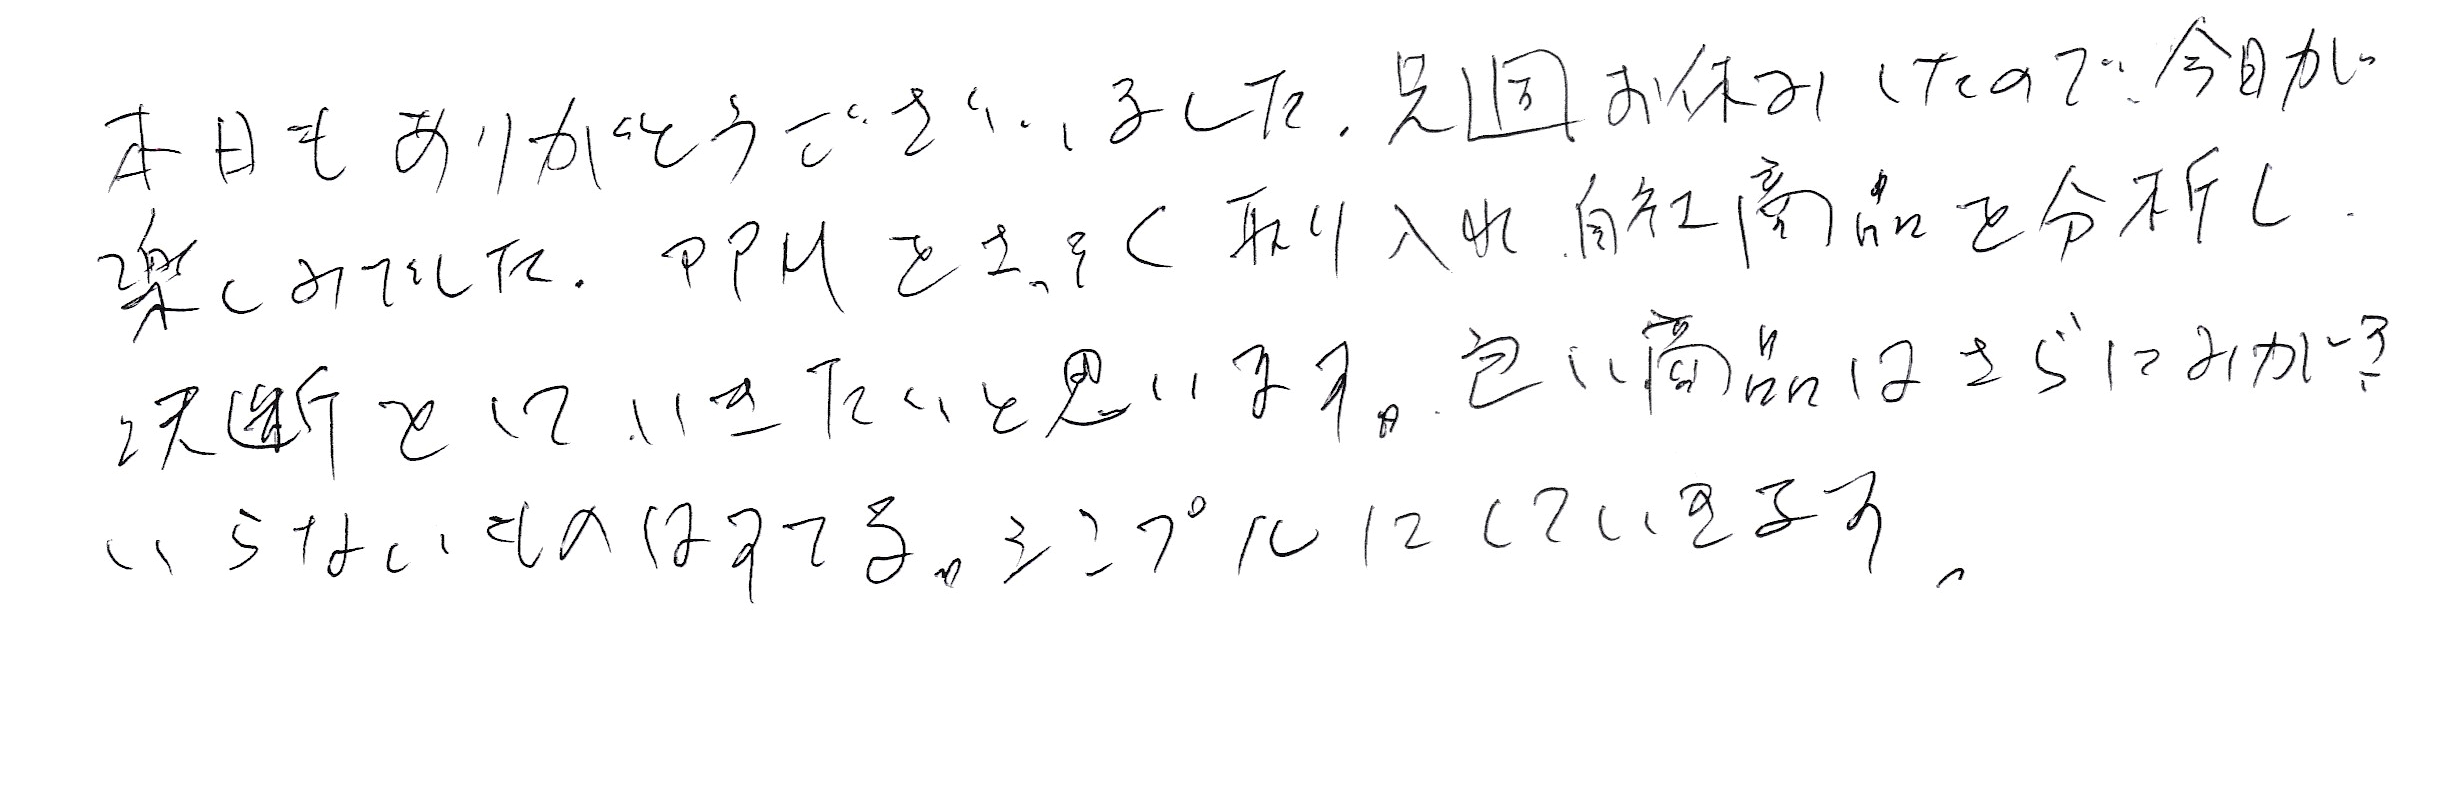 本日もありがとうございました。先週お休みしたので、今日が
楽しみでした。PPMをさっそく取り入れ、自社商品を分析し、
決断をしていきたいと思います。良い商品はさらにみがき
いらないものはすてる。シンプルにしていきます。